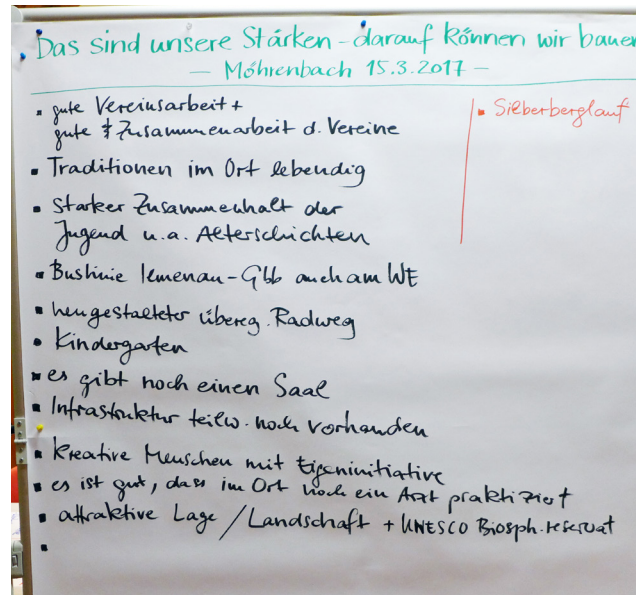 Das sind unsere Stärken - darauf können wir bauen
- Möhrenbach 15.3.2017 -
▪ gute Vereinsarbeit +
gute Zusammenarbeit d. Vereine
▪ Traditionen im Ort lebendig
▪ Starker Zusammenhalt der
Jugend u.a. Altersschichten
▪ Buslinie Ilmenau - Gbb auch am WE
▪ neugestalteter überreg. Radweg
▪ Kindergarten
▪ es gibt noch einen Saal
▪ Infrastruktur teilw. noch vorhanden
▪ kreative Menschen mit Eigeninitiative
▪ es ist gut, dass im Ort noch ein Arzt praktiziert
▪ attraktive Lage / Landschaft + UNESCO Biosph.reservat
▪
▪ Silberberglauf